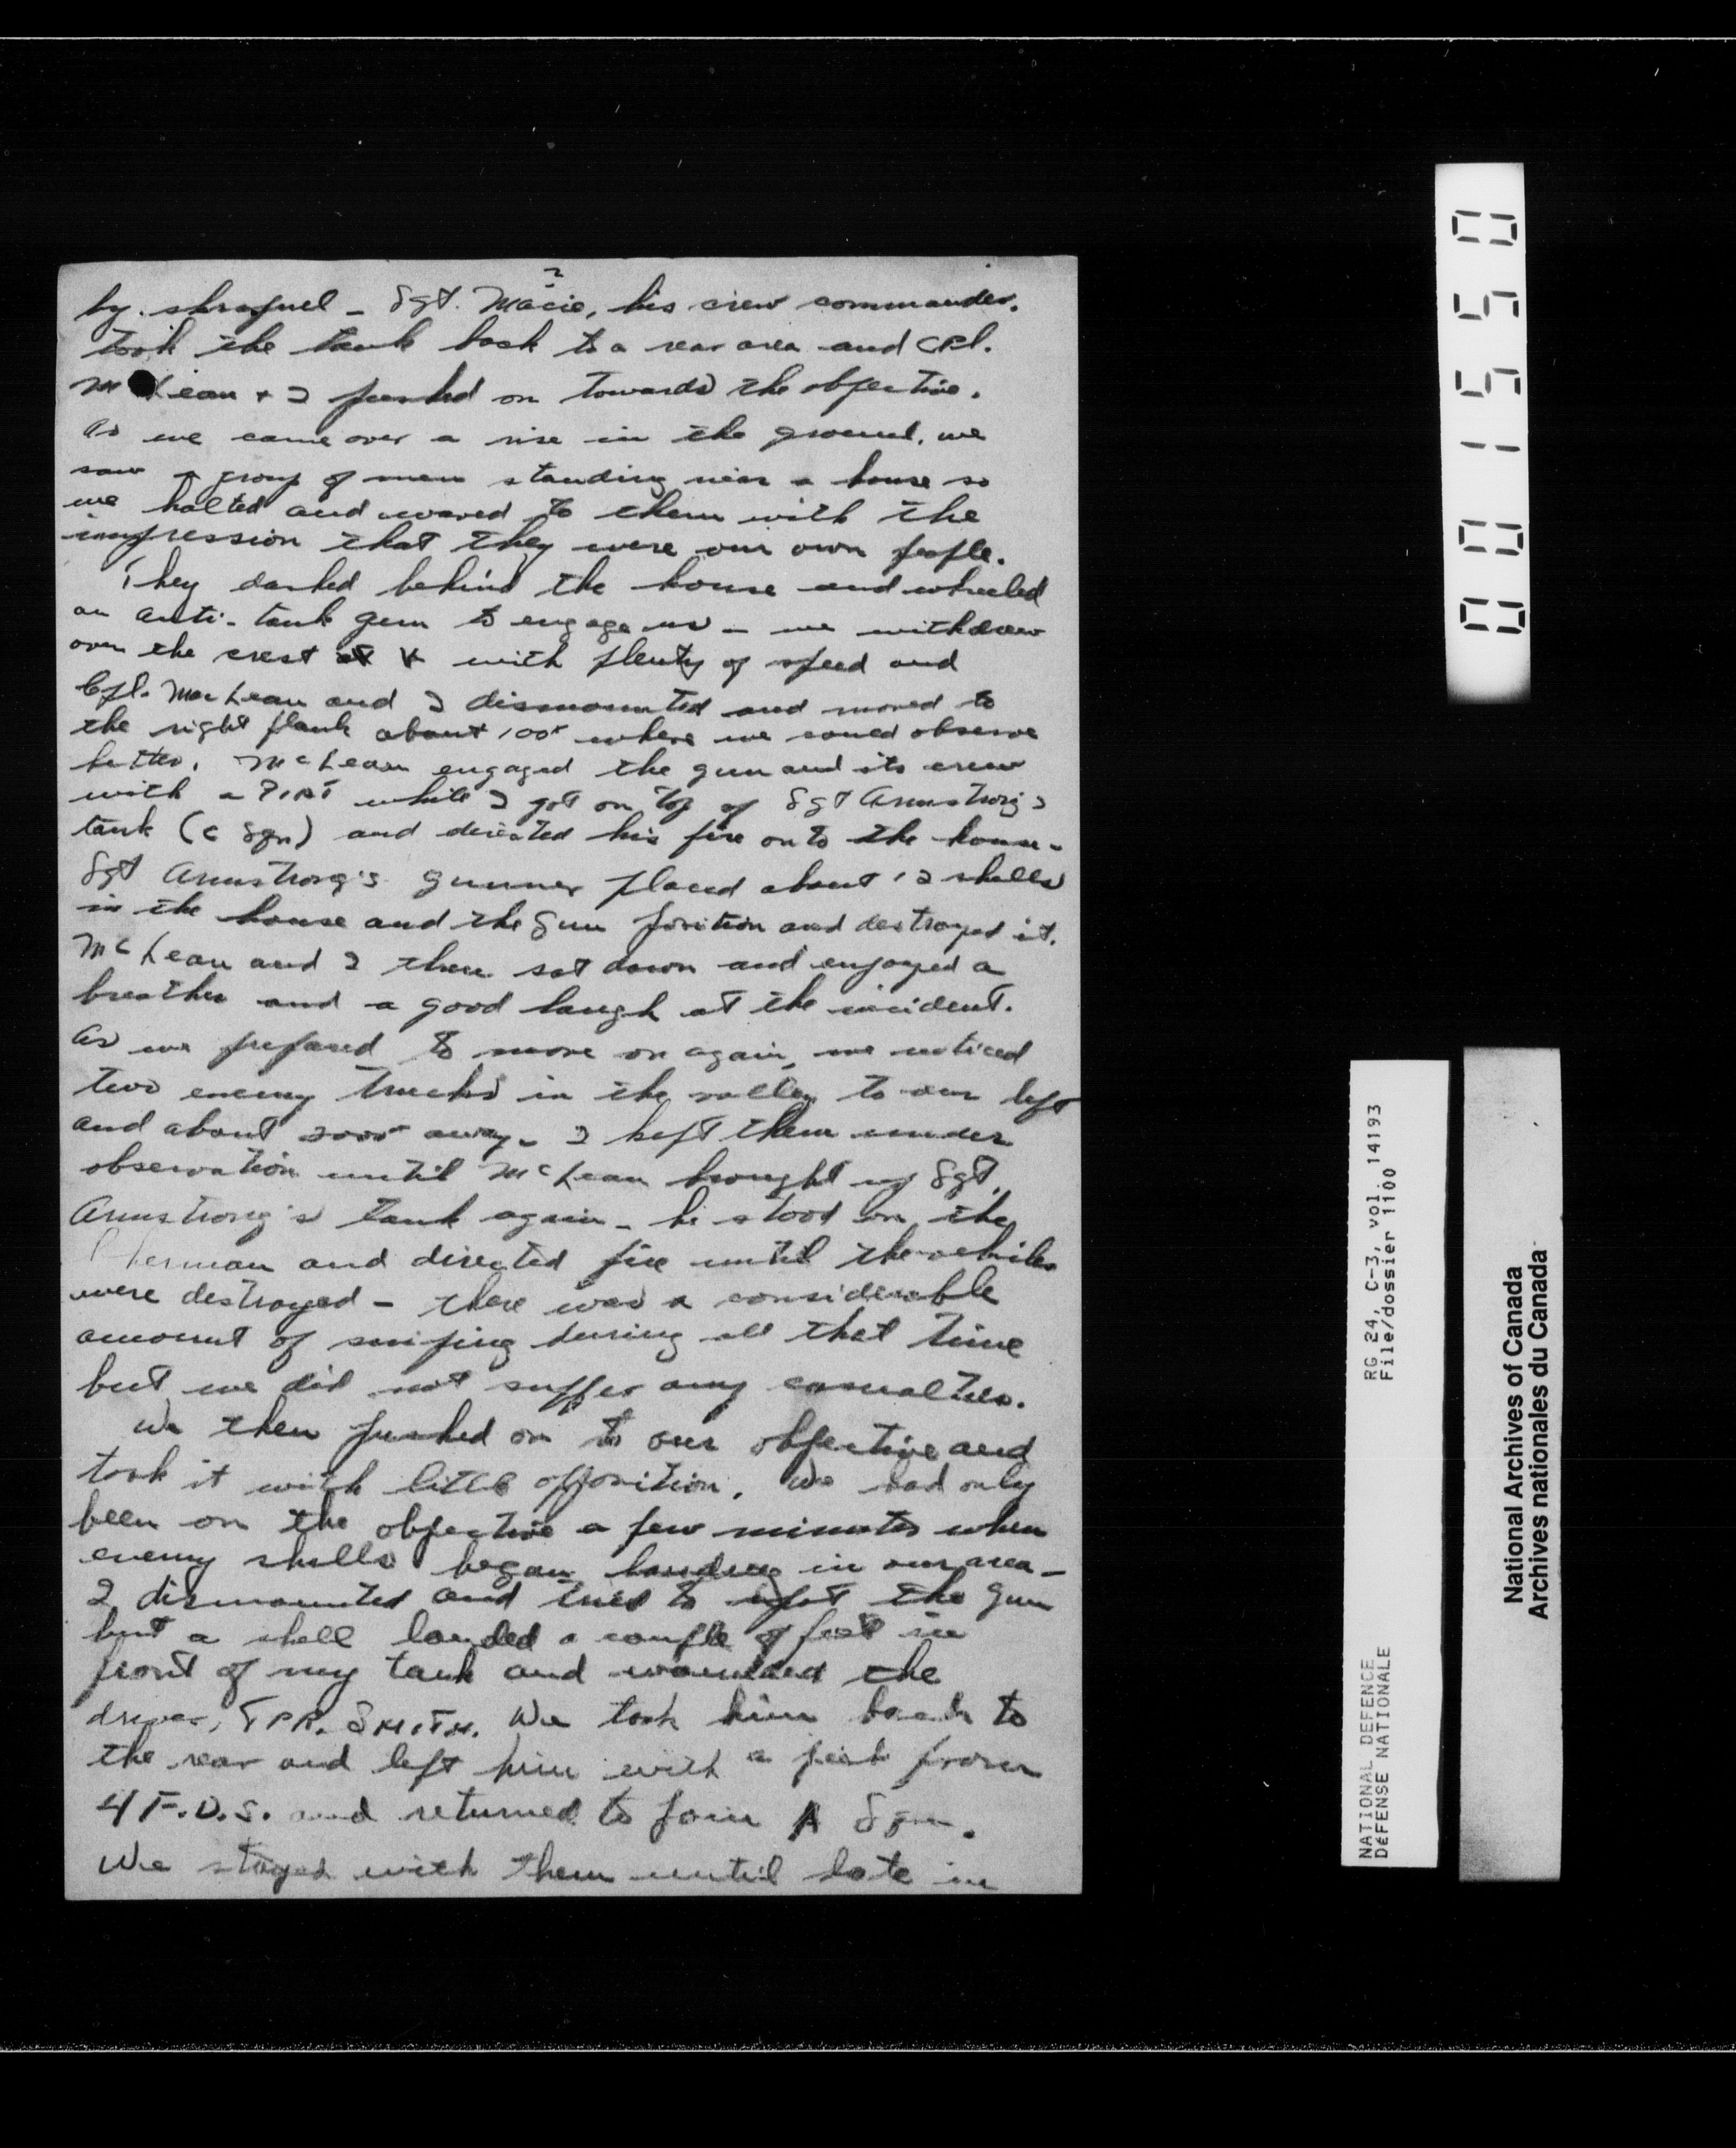 by. shrapnel - Sgt. Macie, his crew commander.
took the tank back to a rear area and CPl.
McLean + I pushed on towards the objective.
As we came over a rise in the ground, we
saw a group of men standing near a house so
we halted and waved to them with the
impression that they were our own people.
They dashed behind the house and wheeled
an anti-tank gun to engage us - we withdrew
over the crest with plenty of speed and
Cpl. MacLean and I dismounted and moved to
the right flank about 100x where we could observe
better. McLean engaged the gun and its crew
with a PIAT while I got on top of Sgt Armstrong's
tank (C Sqn) and directed his fire onto the house -
Sgt Armstrong's gunner placed about 12 shells
in the house and the gun position and destroyed it.
McLean and I then sat down and enjoyed a
breather and a good laugh at the incident.
As we prepared to move on again, we noticed
two enemy trucks in the valley to our left
and about 2000x away - I kept them under
observation until McLean brought up Sgt.
Armstrong's tank again - he stood on the
Sherman and directed fire until the vehicles
were destroyed - there was a considerable
amount of sniping during all that time
but we did not suffer any casualties.
We then pushed on to our objective and
took it with little opposition. We had only
been on the objective a few minutes when
enemy shells began landing in our area -
I dismounted and tried to spot the gun
but a shell landed a couple of feet in
front of my tank and wounded the
driver, TPR. SMITH. We took him back to
the rear and left him with a from
4 F.D.S. and returned to join A Sqn.
We stayed with them until late in
001550
RG 24, C-3, vol. 14193
File/dossier 1100
NATIONAL DEFENCE
DÉFENSE NATIONALE
National Archives of Canada
Archives nationales du Canada